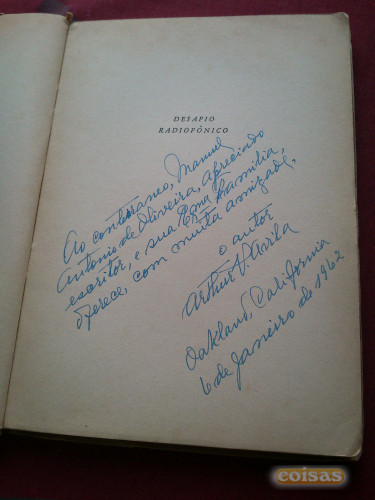 DESAFIO
RADIOFÔNICO
Ao conterraneo, Manuel
Antonio de Oliveira, apreciado
escritor, e sua Exma Familia,
oferece, com muita amizade,
o autor
Arthur V. Avila
Oakland, California
6 de Janeiro de 1962
coisas